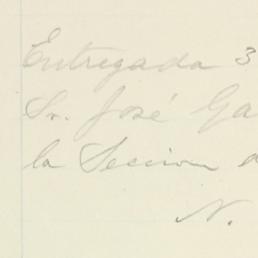 Entregada 3
Sr. José Ga
la Seccion d
N.